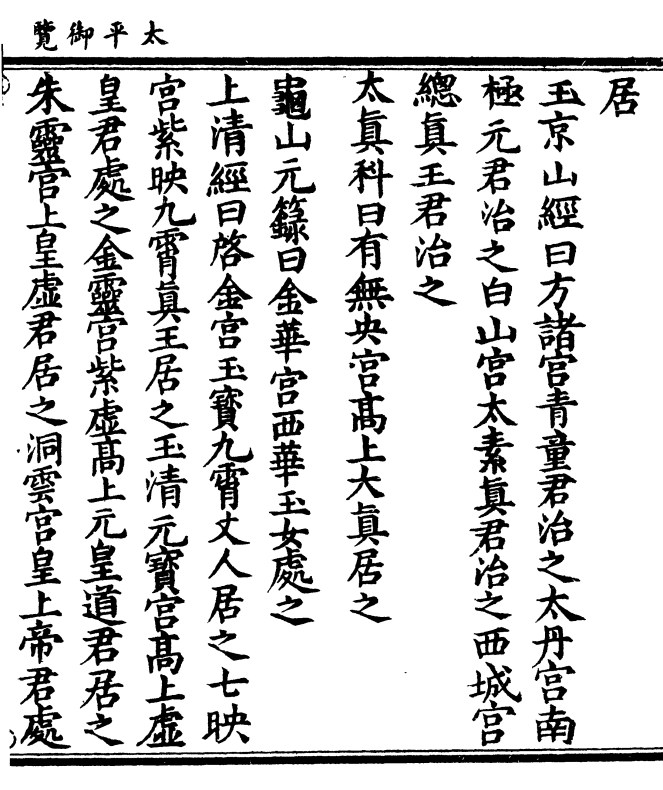 太平御覽
居
玉京山經曰方諸宮青童君治之太丹宮南
極元君治之白山宮太素眞君治之西城宮
總眞王君治之
太眞科曰有無央宮髙上大眞居之
龜山元籙曰金華宮西華玉女處之
上清經曰啓金宮玉寳九霄丈人居之七映
宮紫映九霄眞王居之玉清元寳宮髙上虛
皇君處之金靈宮紫虛髙上元皇道君居之
朱靈宮上皇虛君居之洞雲宮皇上帝君處